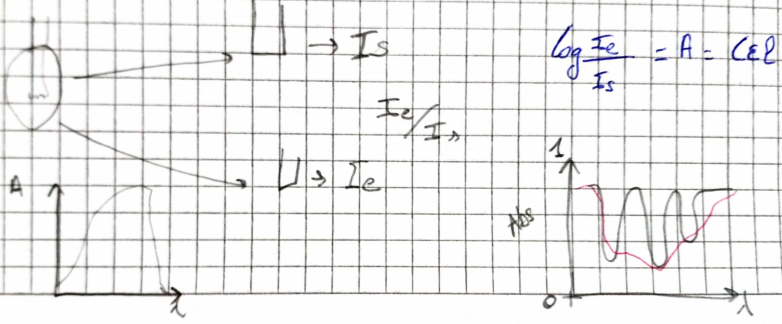 → Is
log Ie/Is = A = Cεl
Ie/Is
→ Ie
A
λ
1
Abs
0
λ